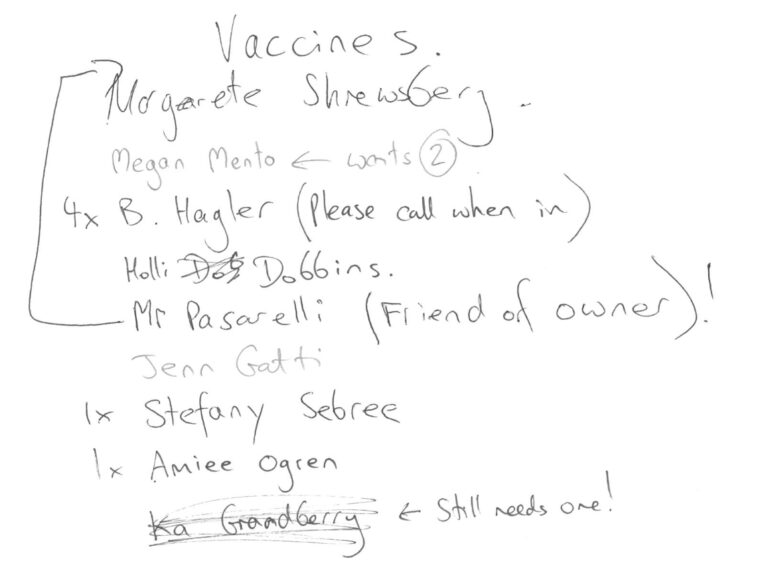 Vaccines.
Morgarete Shrewsberg.
Megan Mento ← wants 2
4x B. Hagler (Please call when in)
Holli Dob Dobbins.
Mr Pasarelli (Friend of owner)!
Jenn Gatti
1x Stefany Sebree
1x Amiee Ogren
Ka Grandberry ← Still needs one!